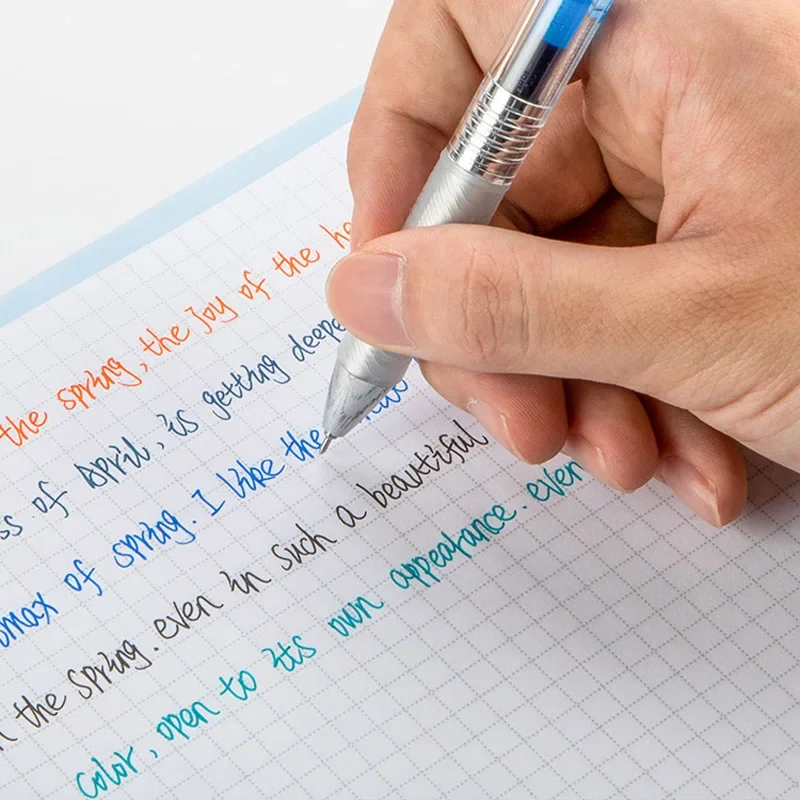 the spring, the joy of the
of April, is getting deepe
of spring. I like the
the spring. even in such a beautiful
color, open to its own appearance. even